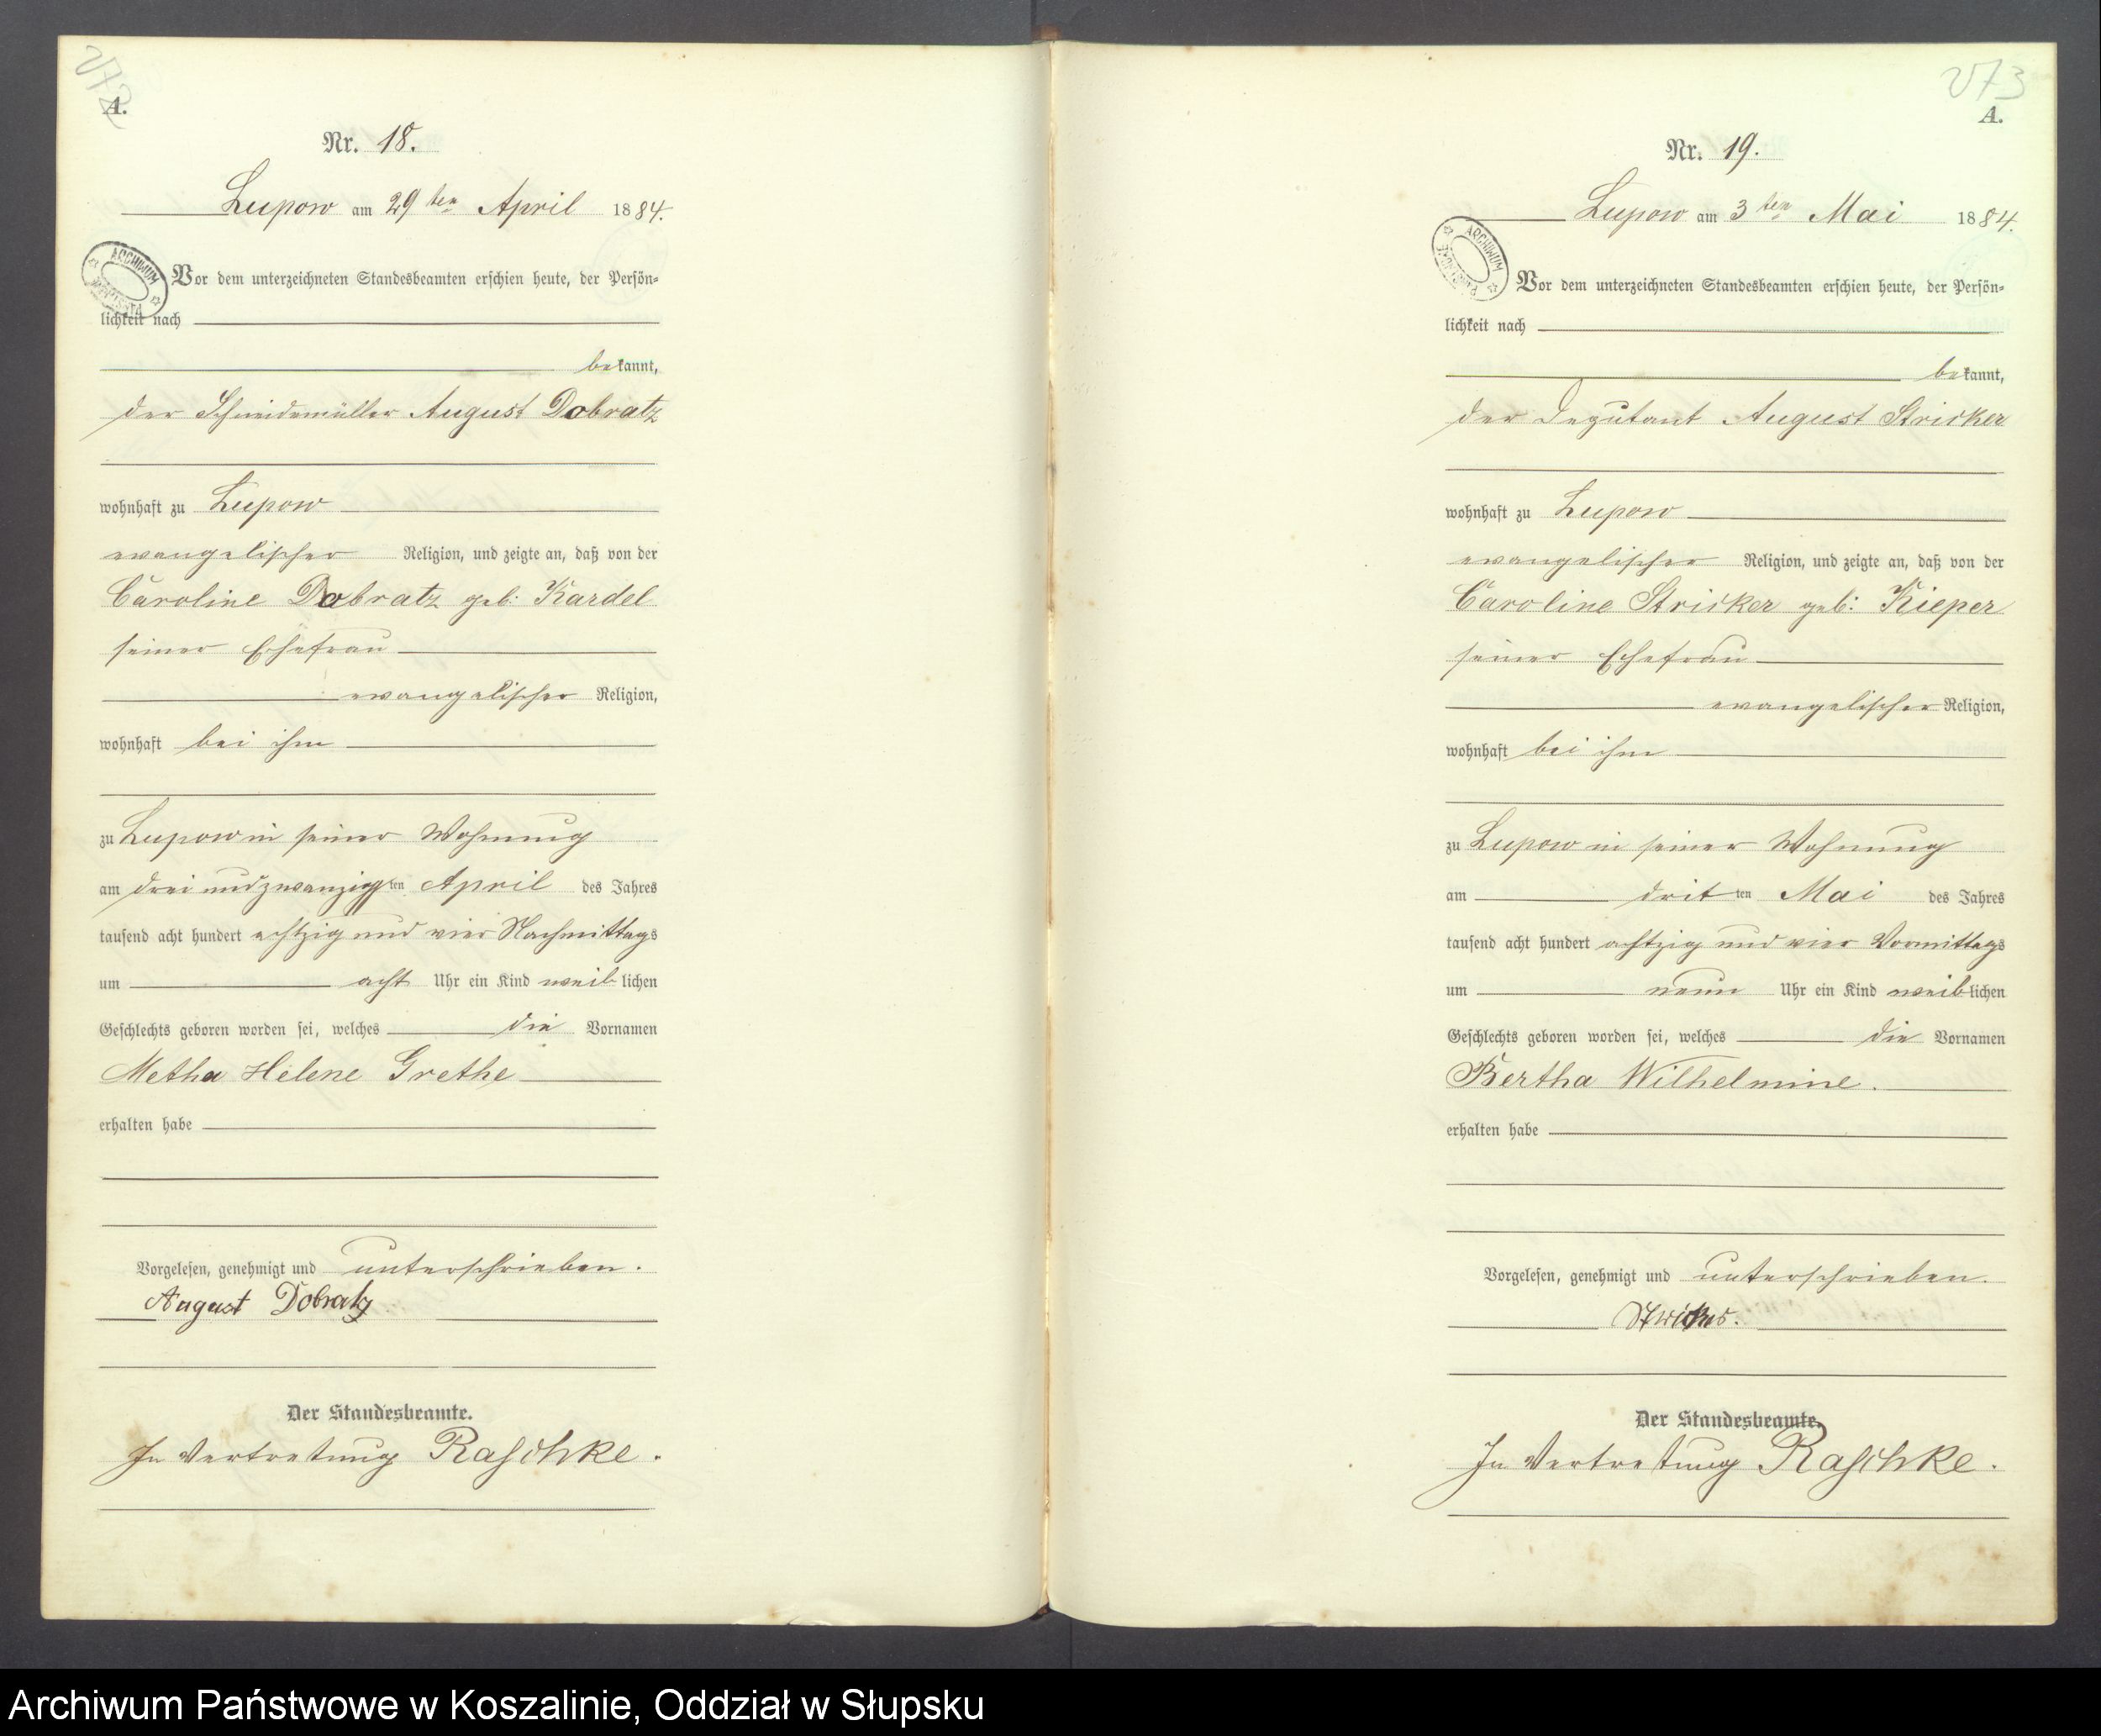 272
A.
Nr. 18.
Lupow am 29ten April 1884.
ARCHIWUM
Vor dem unterzeichneten Standesbeamten erschien heute, der Persön=
lichkeit nach
bekannt,
der Schneidemüller August Dobratz
wohnhaft zu Lupow
evangelischer Religion, und zeigte an, daß von der
Caroline Dobratz geb: Kardel
seiner Ehefrau
evangelischer Religion,
wohnhaft bei ihm
zu Lupow in seiner Wohnung
am drei und zwanzigsten April des Jahres
tausend acht hundert achtzig und vier Nachmittags
um acht Uhr ein Kind weiblichen
Geschlechts geboren worden sei, welches die Vornamen
Metha Helene Grethe
erhalten habe
Vorgelesen, genehmigt und unterschrieben.
August Dobratz
Der Standesbeamte.
In Vertretung Raschke.
273
A.
Nr. 19.
Lupow am 3ten Mai 1884.
ARCHIWUM
Vor dem unterzeichneten Standesbeamten erschien heute, der Persön=
lichkeit nach
bekannt,
der Deputant August Stricker
wohnhaft zu Lupow
evangelischer Religion, und zeigte an, daß von der
Caroline Stricker geb: Kieper
seiner Ehefrau
evangelischer Religion,
wohnhaft bei ihm
zu Lupow in seiner Wohnung
am dritten Mai des Jahres
tausend acht hundert achtzig und vier Vormittags
um neun Uhr ein Kind weiblichen
Geschlechts geboren worden sei, welches die Vornamen
Bertha Wilhelmine.
erhalten habe
Vorgelesen, genehmigt und unterschrieben.
Der Standesbeamte.
In Vertretung Raschke.
Archiwum Państwowe w Koszalinie, Oddział w Słupsku